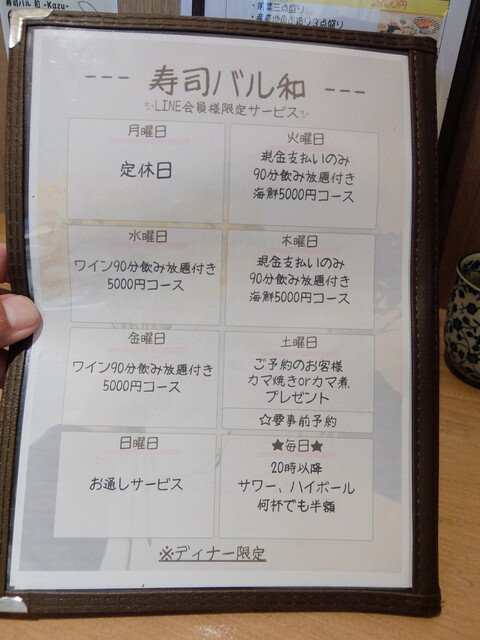 寿司バル 和 -Kazu-
・前菜三点盛り
・産直地魚お造り3点盛り
--- 寿司バル和 ---
LINE会員様限定サービス
月曜日
定休日
火曜日
現金支払いのみ
90分飲み放題付き
海鮮5000円コース
水曜日
ワイン90分飲み放題付き
5000円コース
木曜日
現金支払いのみ
90分飲み放題付き
海鮮5000円コース
金曜日
ワイン90分飲み放題付き
5000円コース
土曜日
ご予約のお客様
カマ焼きorカマ煮
プレゼント
☆要事前予約
日曜日
お通しサービス
★毎日★
20時以降
サワー、ハイボール
何杯でも半額
※ディナー限定